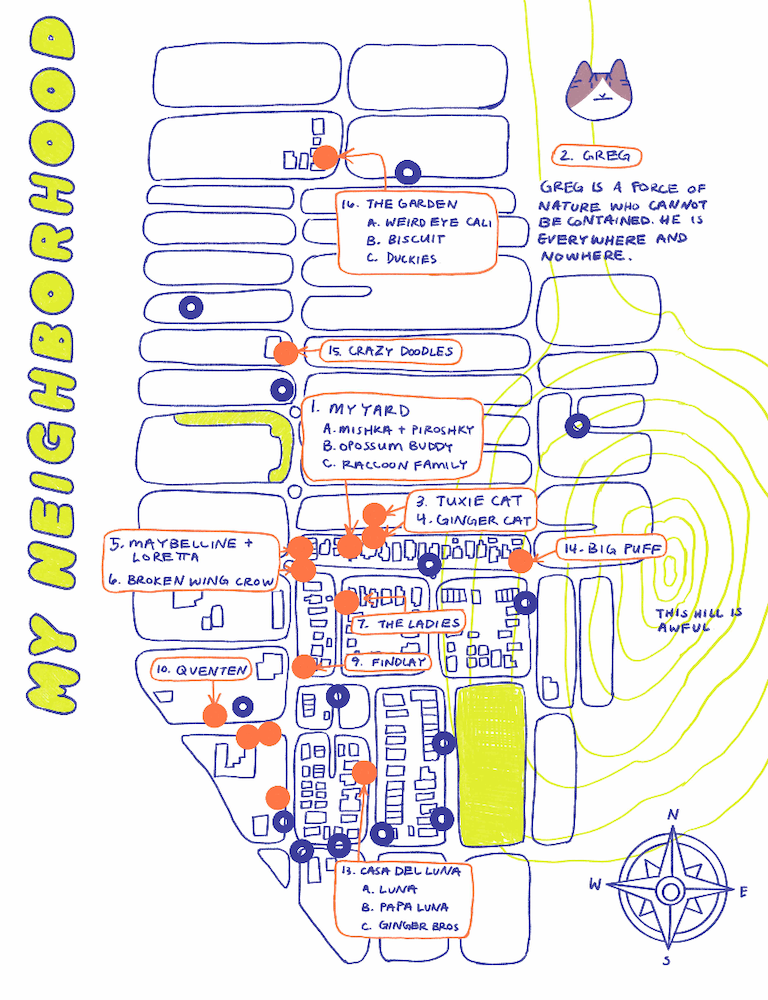 MY NEIGHBORHOOD
2. GREG
GREG IS A FORCE OF
NATURE WHO CANNOT
BE CONTAINED. HE IS
EVERYWHERE AND
NOWHERE.
16. THE GARDEN
A. WEIRD EYE CALI
B. BISCUIT
C. DUCKIES
15. CRAZY DOODLES
1. MY YARD
A. MISHKA + PIROSHKY
B. OPOSSUM BUDDY
C. RACCOON FAMILY
3. TUXIE CAT
4. GINGER CAT
5. MAYBELLINE +
LORETTA
6. BROKEN WING CROW
14. BIG PUFF
7. THE LADIES
THIS HILL IS
AWFUL
9. FINDLAY
10. QVENTEN
13. CASA DEL LUNA
A. LUNA
B. PAPA LUNA
C. GINGER BROS
N
W
E
S